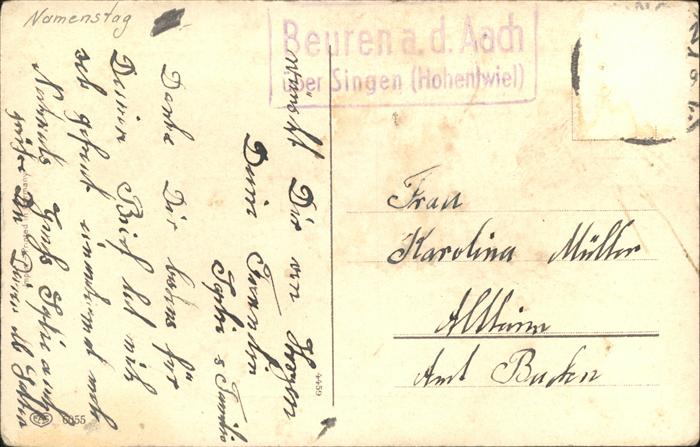 Namenstag
Beuren a. d. Aach
über Singen (Hohentwiel)
wünscht Dir von Herzen
Deine Freundin
Sophie & Familie
Danke Dir bestens für
Deinen Brief hat mich
sehr gefreut
Nochmals Gruß
Frau
Karolina Müller
Altheim
Amt Buchen
4459
6055